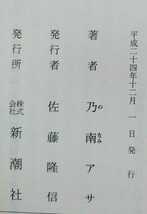 平成二十四年十二月 一日 発行
著者 乃南アサ
のなみ
発行者 佐藤隆信
発行所 株式会社 新潮社